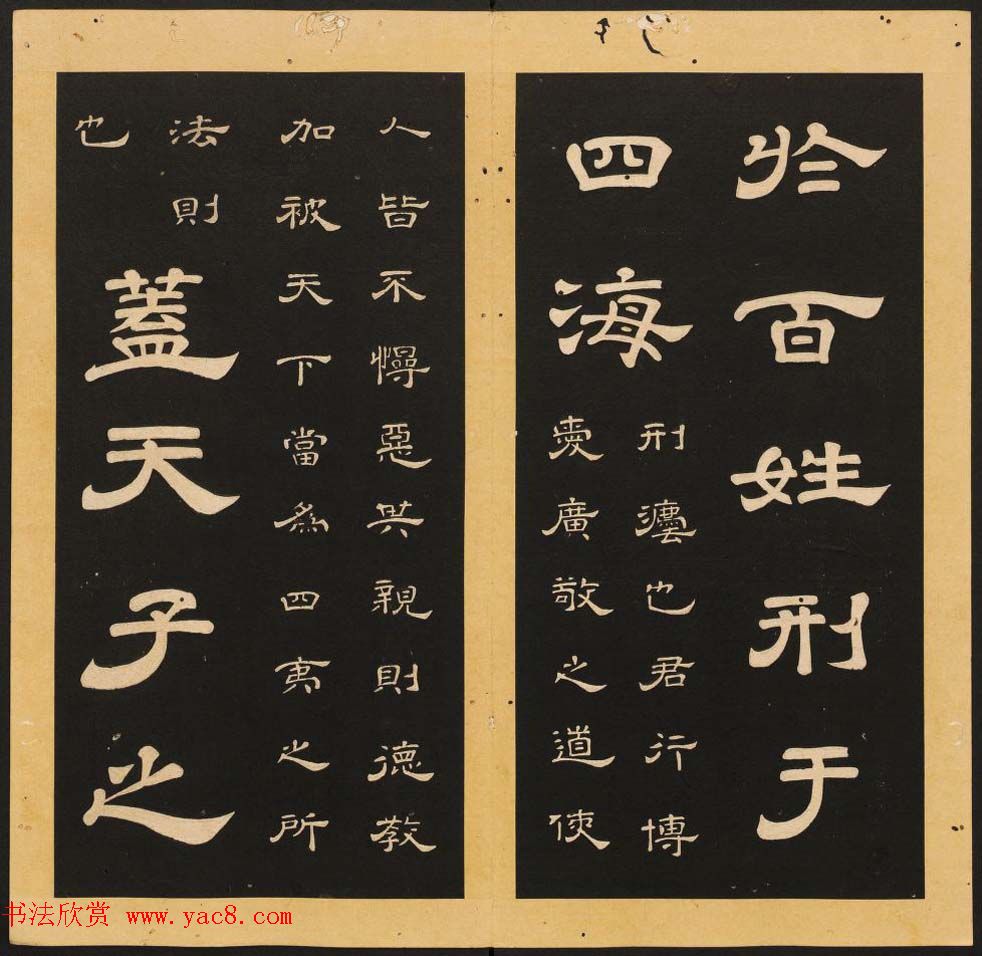 於百姓刑于
四海
刑灋也君行博
愛廣敬之道使
人皆不慢惡其親則德教
加被天下當為四夷之所
法則
也
蓋天子之
书法欣赏 www.yac8.com